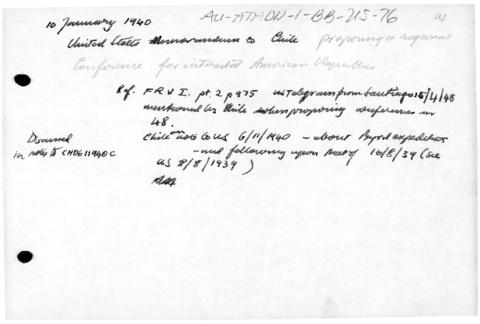 10 January 1940 AU-ATADD-1-BB-215-76 US
United States Memorandum to Chile proposing a regional
Conference for interested American Republics
Ref. FRUS I. pt. 2 p975 US Telegram from Santiago 15/4/48
mentioned by Chile when proposing conference in
48.
Discussed Chile note to US 6/11/1940 - about Byrd expedition
in note to CH06111940C - and following upon that of 16/8/39 (see
US 8/8/1939)